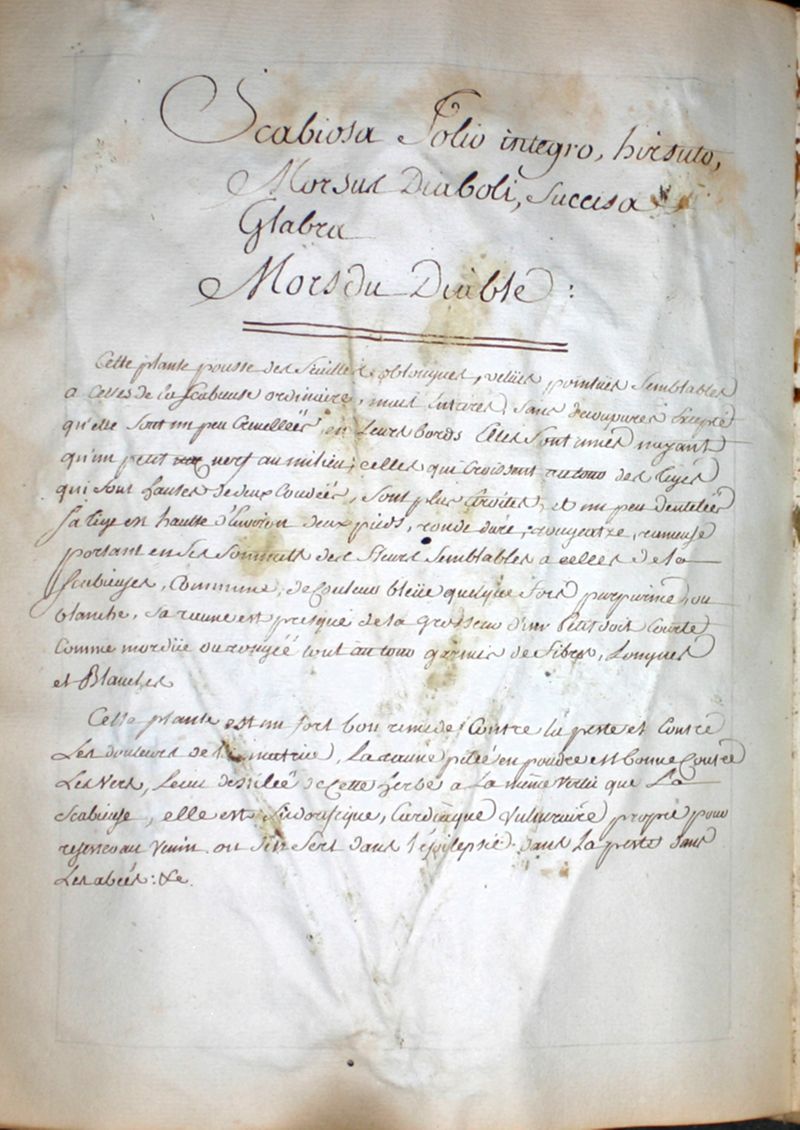 Scabiosa Folio integro, hirsuto,
Morsus Diaboli, Succisa
Glabra
Mors du Diable :
Cette plante pousse des feuilles oblongues, velües pointües Semblables
a Celles de la Scabieuse ordinaire, mais Entieres, Sans decoupures Excepté
qu'elle Sont un peu Crenelleés en Leurs bords Elles Sont unies nayant
qu'un petit nerf au milieu; celles qui Croissent autour des tiges
qui Sont hautes de deux Coudeés, Sont plus Etroites, et un peu dentelleés
Sa tige en haulte d'Environ deux pieds, ronde dure, rougeatre, rameuse
portant en Ses Sommets des fleurs Semblables a celles de la
Scabieuses, Commune, de Couleur bleüe quelque fois purpurine, ou
blanche, Sa racine est presque de la grosseur d'un Petit doit Courte
Comme mordüe ou rongéé tout au tour garnies de fibres, Longues
et Blanches
Cette plante est un fort bon remede Contre la peste et Contre
Les douleurs de la matrice, La racine pileé en poudre est bonne Contre
Les Vers, Leau destileé de Cette herbe a La même Vertu que La
Scabieuse, elle est Sudorifique, Cardiaque Vulneraire propre pour
resister au Venin on S'en Sert dans l'épilepsie dans La peste dans
Les abcés : &c.